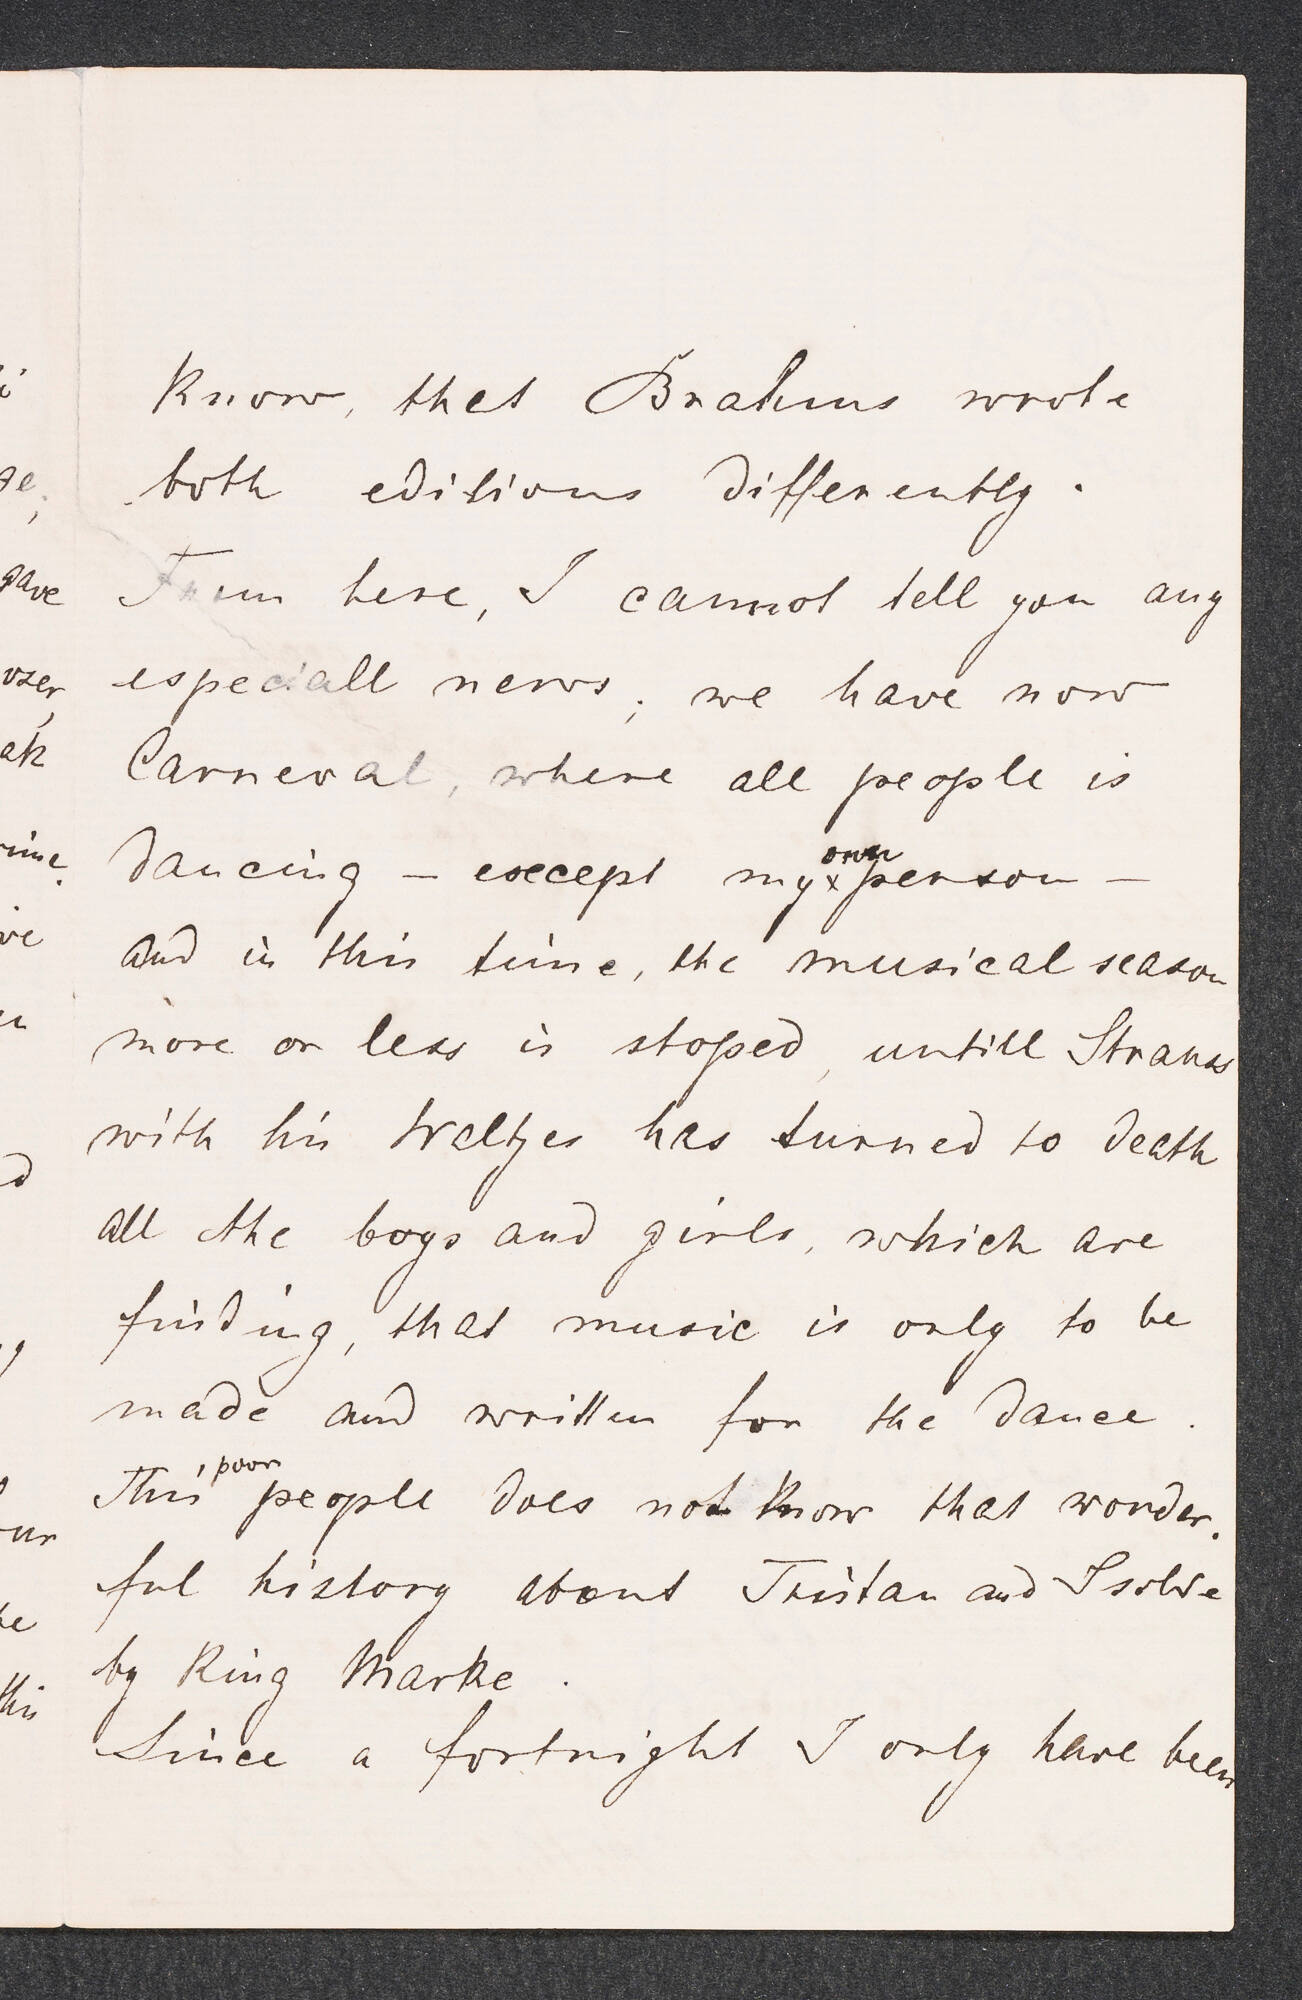 know, that Brahms wrote
both editions differently.
From here, I cannot tell you any
especiall news; we have now
Carneval, where all people is
dancing – except my own person –
and in this time, the musical season
more or less is stoped, untill Strauss
with his Waltzes has turned to death
all the boys and girls, which are
finding, that music is only to be
made and written for the dance.
This poor people does not know that wonder-
ful history about Tristan and Isolde
by King Marke.
Since a fortnight I only have been
gave
ak
this